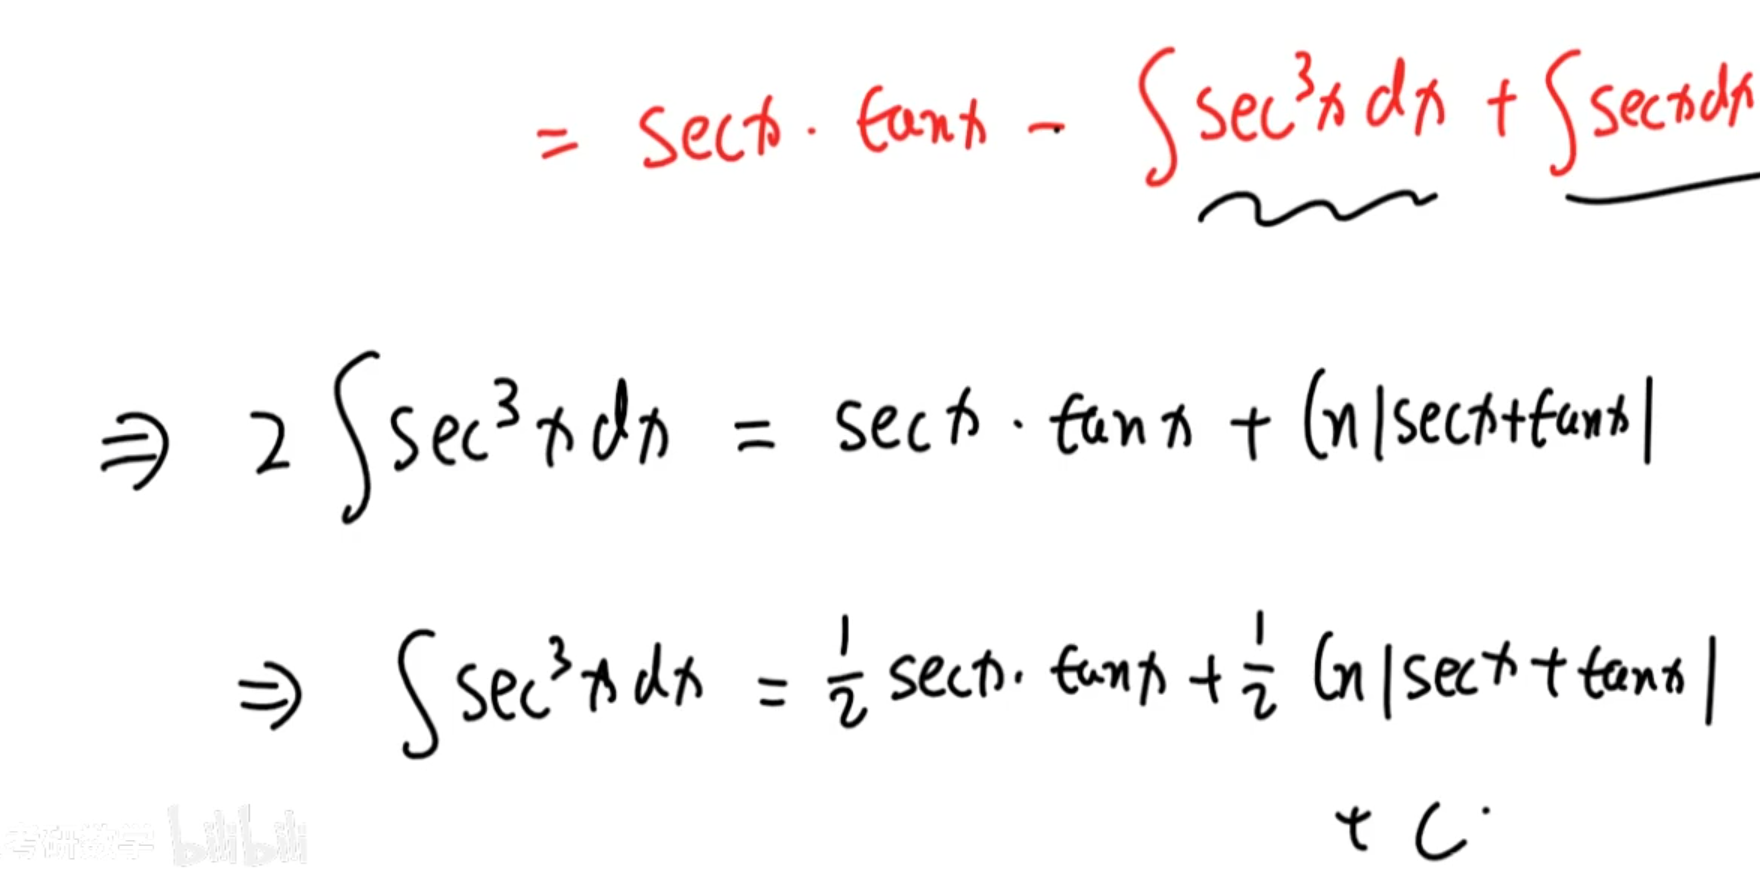 = secx · tanx - ∫sec³x dx + ∫secxdx
⇒ 2∫sec³xdx = secx · tanx + ln|secx+tanx|
⇒ ∫sec³xdx = 1/2 secx · tanx + 1/2 ln|secx+tanx|
+ C.
考研数学 bilibili